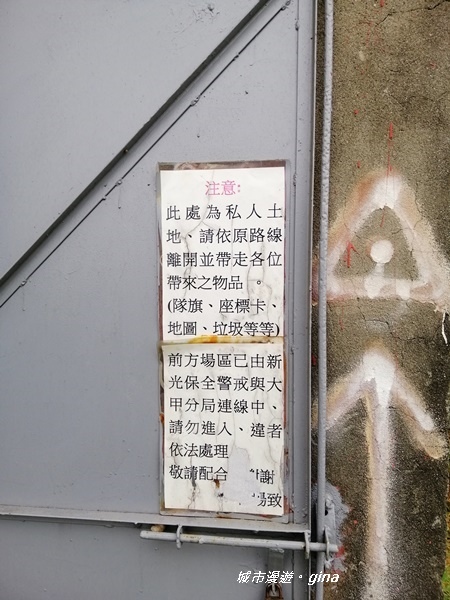 注意:
此處為私人土
地、請依原路線
離開並帶走各位
帶來之物品。
(隊旗、座標卡、
地圖、垃圾等等)
前方場區已由新
光保全警戒與大
甲分局連線中、
請勿進入、違者
依法處理
敬請配合 謝
致
城市漫遊。gina